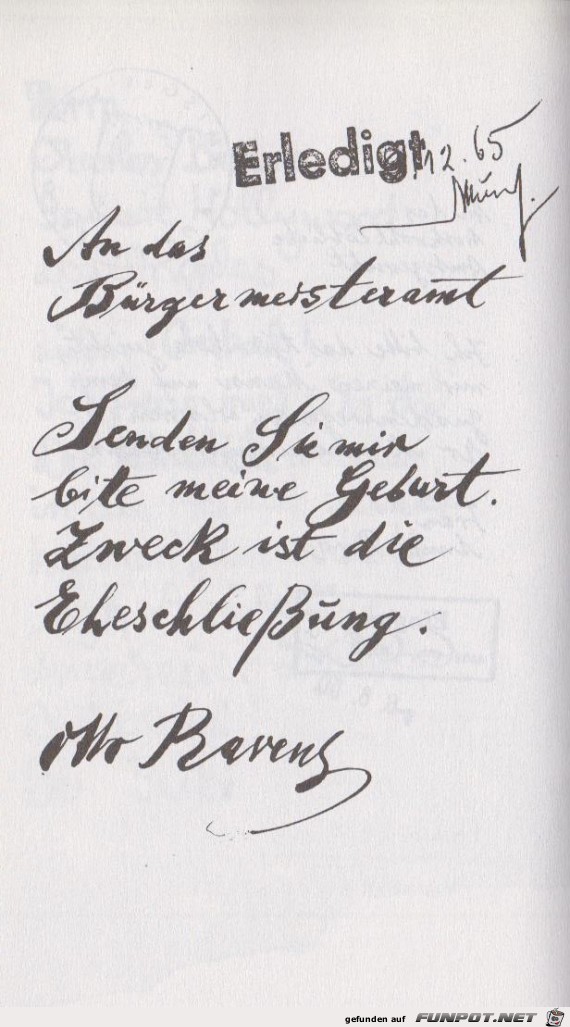 Erledigt 12.65
An das
Bürgermeisteramt
Senden Sie mir
bite meine Geburt.
Zweck ist die
Eheschließung.
Otto Ravens
gefunden auf FUNPOT.NET